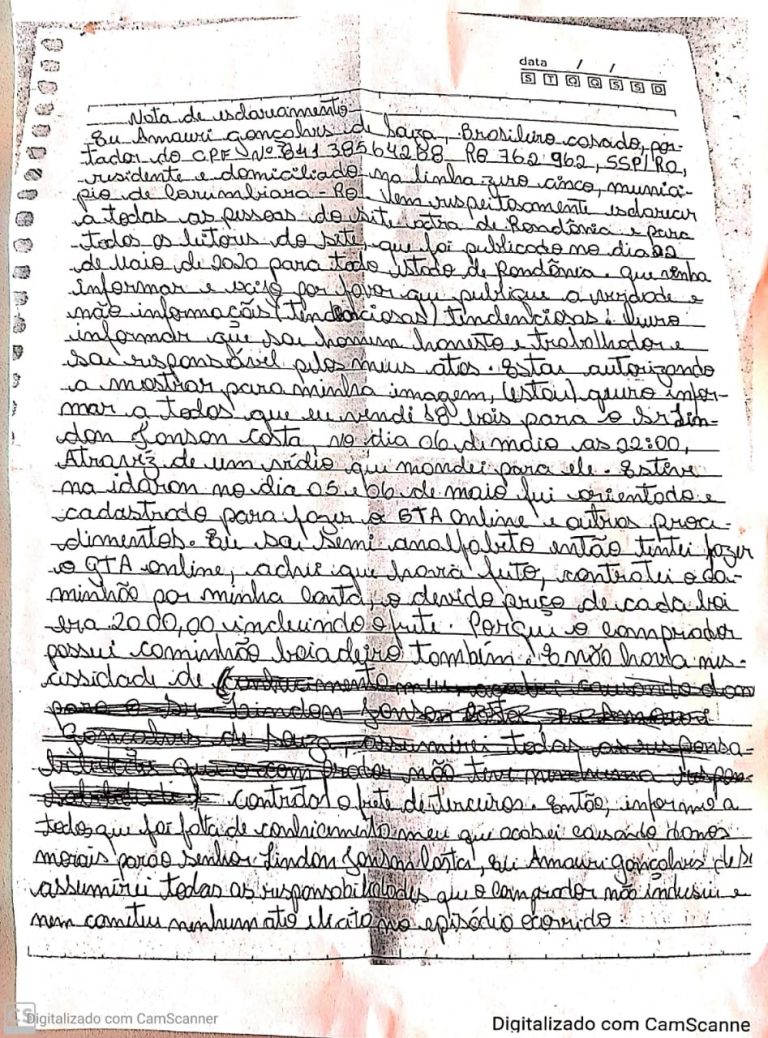 data / /
S T Q Q S S D
Nota de esclarecimento
Eu Amauri gonçalves de Souza, Brasileiro casado, por-
tador do CPF Nº 84138564288 RG 762 962, SSP/RO,
residente e domiciliado na linha zero cinco, munici-
pio de Corumbiara - RO. Vem respeitosamente esclarecer
a todas as pessoas do site extra de Rondônia e para
todos os leitores do site, que foi publicado no dia 22
de Maio de 2020 para todo estado de Rondônia. que venha
informar e exijo por favor que publique a verdade e
não informações (tendenciosas) tindenciosas! Quero
informar que sou homem honesto e trabalhador e
sou responsável pelos meus atos. Estou autorizando
a mostrar para minha imagem, (estou) quero infor-
mar a todos que eu vendi 18 bois para o Sr Lin-
don Jonson Costa, no dia 06 de maio as 22:00,
Atravéz de um vídio que mandei para ele. Estive
na idaron no dia 05 e 06 de maio fui orientado e
cadastrado para fazer a GTA Online e outros proce-
dimentos. Eu sou semi analfabeto então tentei fazer
o GTA online, achei que havia feito, contratei o ca-
minhão por minha conta, o devido preço de cada boi
era 2000,00 incluindo o frete. Porque o comprador
possui caminhão boiadeiro também. E não havia nes-
cissidade de
contratar o frete de terceiros. Então, informo a
todos que foi falta de conhecimento meu que acabei causando danos
morais para o senhor Lindon Jonson Costa, eu Amauri gonçalves de S
assumirei todas as responsabilidades que o comprador não
nem cometeu nenhum ato ilicito no episódio ocorrido.
CS Digitalizado com CamScanner
Digitalizado com CamScanne